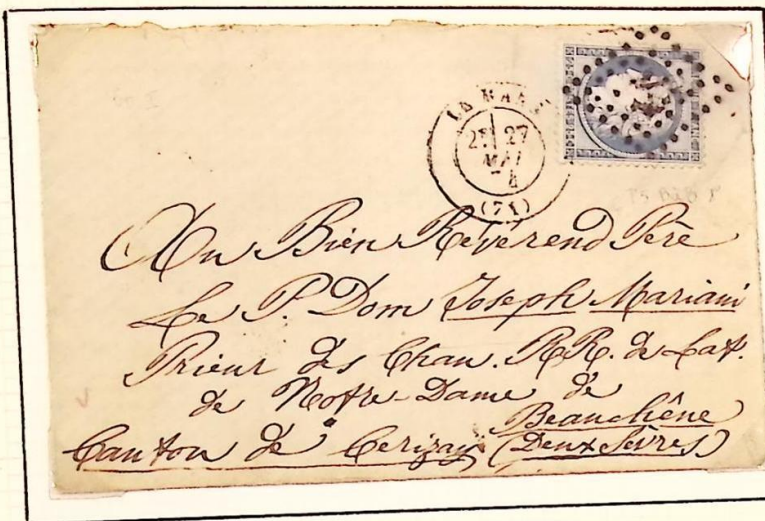 LE MANS
2E 27
MAI
(71)
Au Bien Révérend Père
Le P. Dom Joseph Mariani
Prieur des Chan. RR. de Lat.
de Notre-Dame de
Beauchêne
Canton de Cerizay (Deux Sèvres)